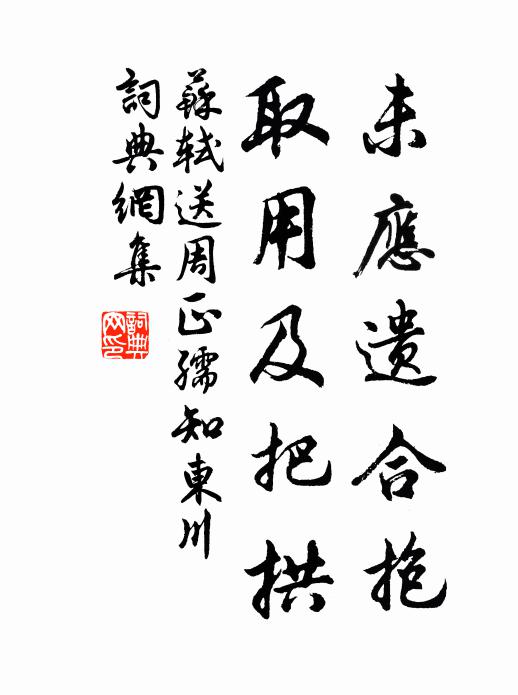 未應遺合抱
取用及把拱
蘇軾送周正孺知東川
詞典網集
詞典網印